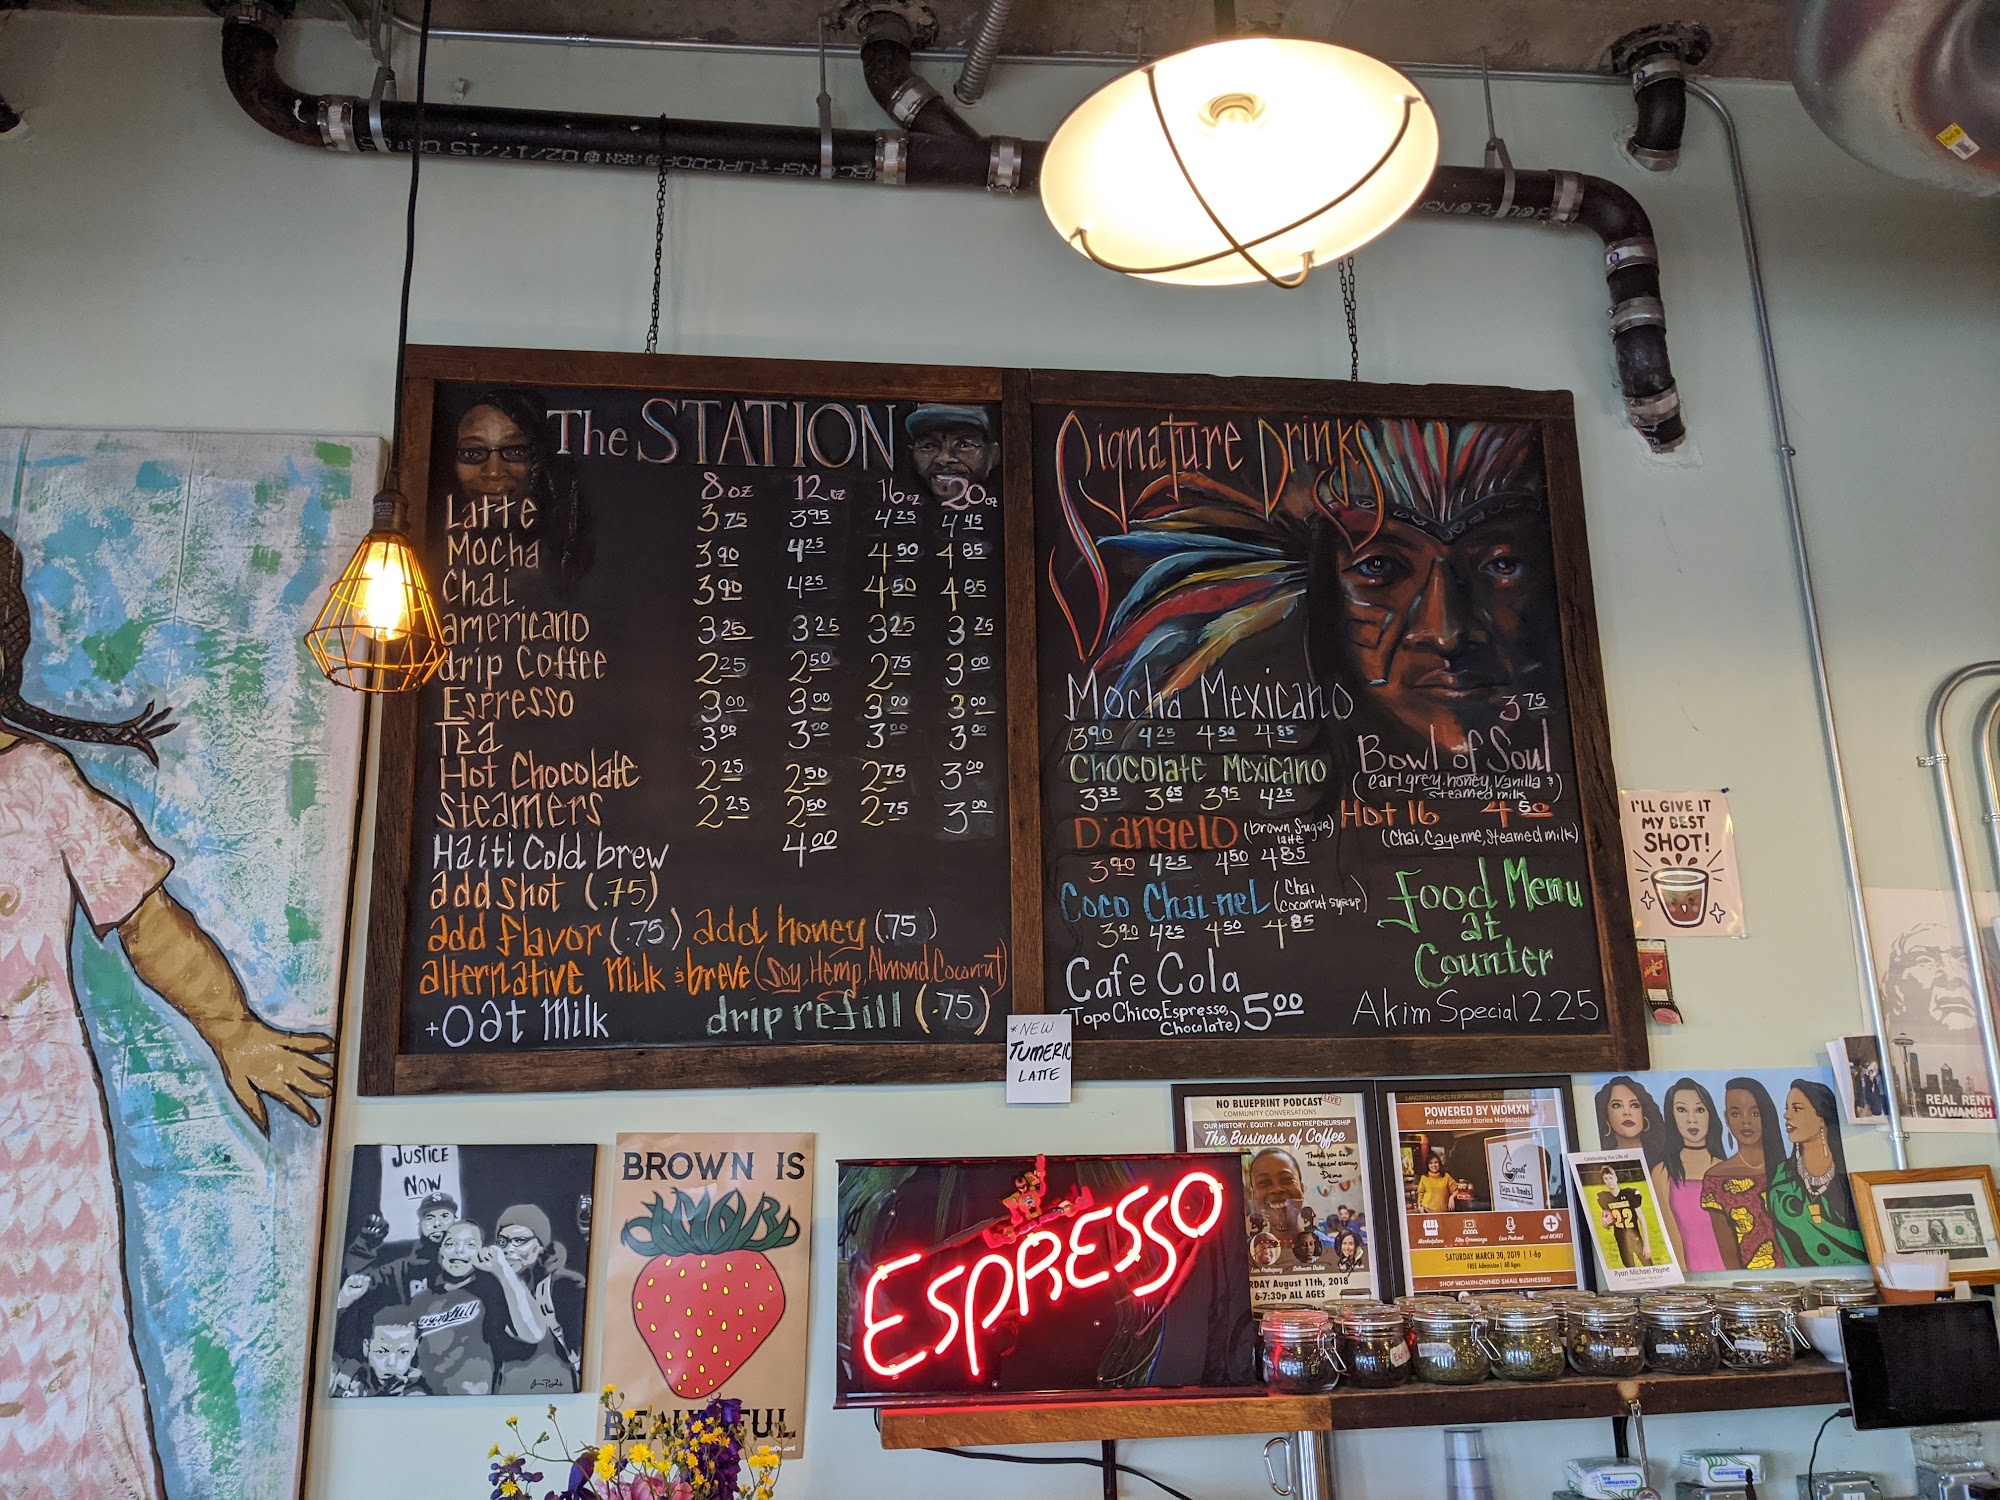 The STATION
8 oz 12 oz 16 oz 20 oz
Latte 3.75 3.95 4.25 4.45
Mocha 3.90 4.25 4.50 4.85
Chai 3.90 4.25 4.50 4.85
americano 3.25 3.25 3.25 3.25
drip Coffee 2.25 2.50 2.75 3.00
Espresso 3.00 3.00 3.00 3.00
Tea 3.00 3.00 3.00 3.00
Hot Chocolate 2.25 2.50 2.75 3.00
Steamers 2.25 2.50 2.75 3.00
Haiti Cold brew 4.00
add shot (.75)
add flavor (.75) add honey (.75)
alternative Milk & breve (Soy, Hemp, Almond, Coconut)
+Oat Milk drip refill (.75)
Signature Drinks
Mocha Mexicano
3.90 4.25 4.50 4.85
Chocolate Mexicano
3.35 3.65 3.95 4.25
D'angelo (brown Sugar latte)
3.90 4.25 4.50 4.85
Coco Chai-nel (Chai Coconut Syrup)
3.90 4.25 4.50 4.85
Cafe Cola
(Topo Chico, Espresso, Chocolate) 5.00
3.75
Bowl of Soul
(earl grey, honey, Vanilla &
steamed milk)
Hot 16 4.50
(Chai, Cayenne, Steamed milk)
Food Menu
at
Counter
Akim Special 2.25
*NEW
TUMERIC
LATTE
I'LL GIVE IT
MY BEST
SHOT!
REAL RENT
DUWAMISH
JUSTICE
NOW
BROWN IS
BEAUTIFUL
ESPRESSO
NO BLUEPRINT PODCAST LIVE
COMMUNITY CONVERSATIONS
OUR HISTORY, EQUITY, AND ENTREPENEURSHIP
The Business of Coffee
August 11th, 2018
6-7:30p ALL AGES
LANGSTON HUGHES PERFORMING ARTS
POWERED BY WOMXN
An Ambassador Stories Marketplace
Sips & Treats
Marketplace Film Screenings Live Podcast and MORE!
SATURDAY MARCH 30, 2019 | 1-6p
FREE Admission | All Ages
SHOP WOMXN-OWNED SMALL BUSINESSES!
Celebrating the Life of
22
Ryan Michael Payne
ASUS